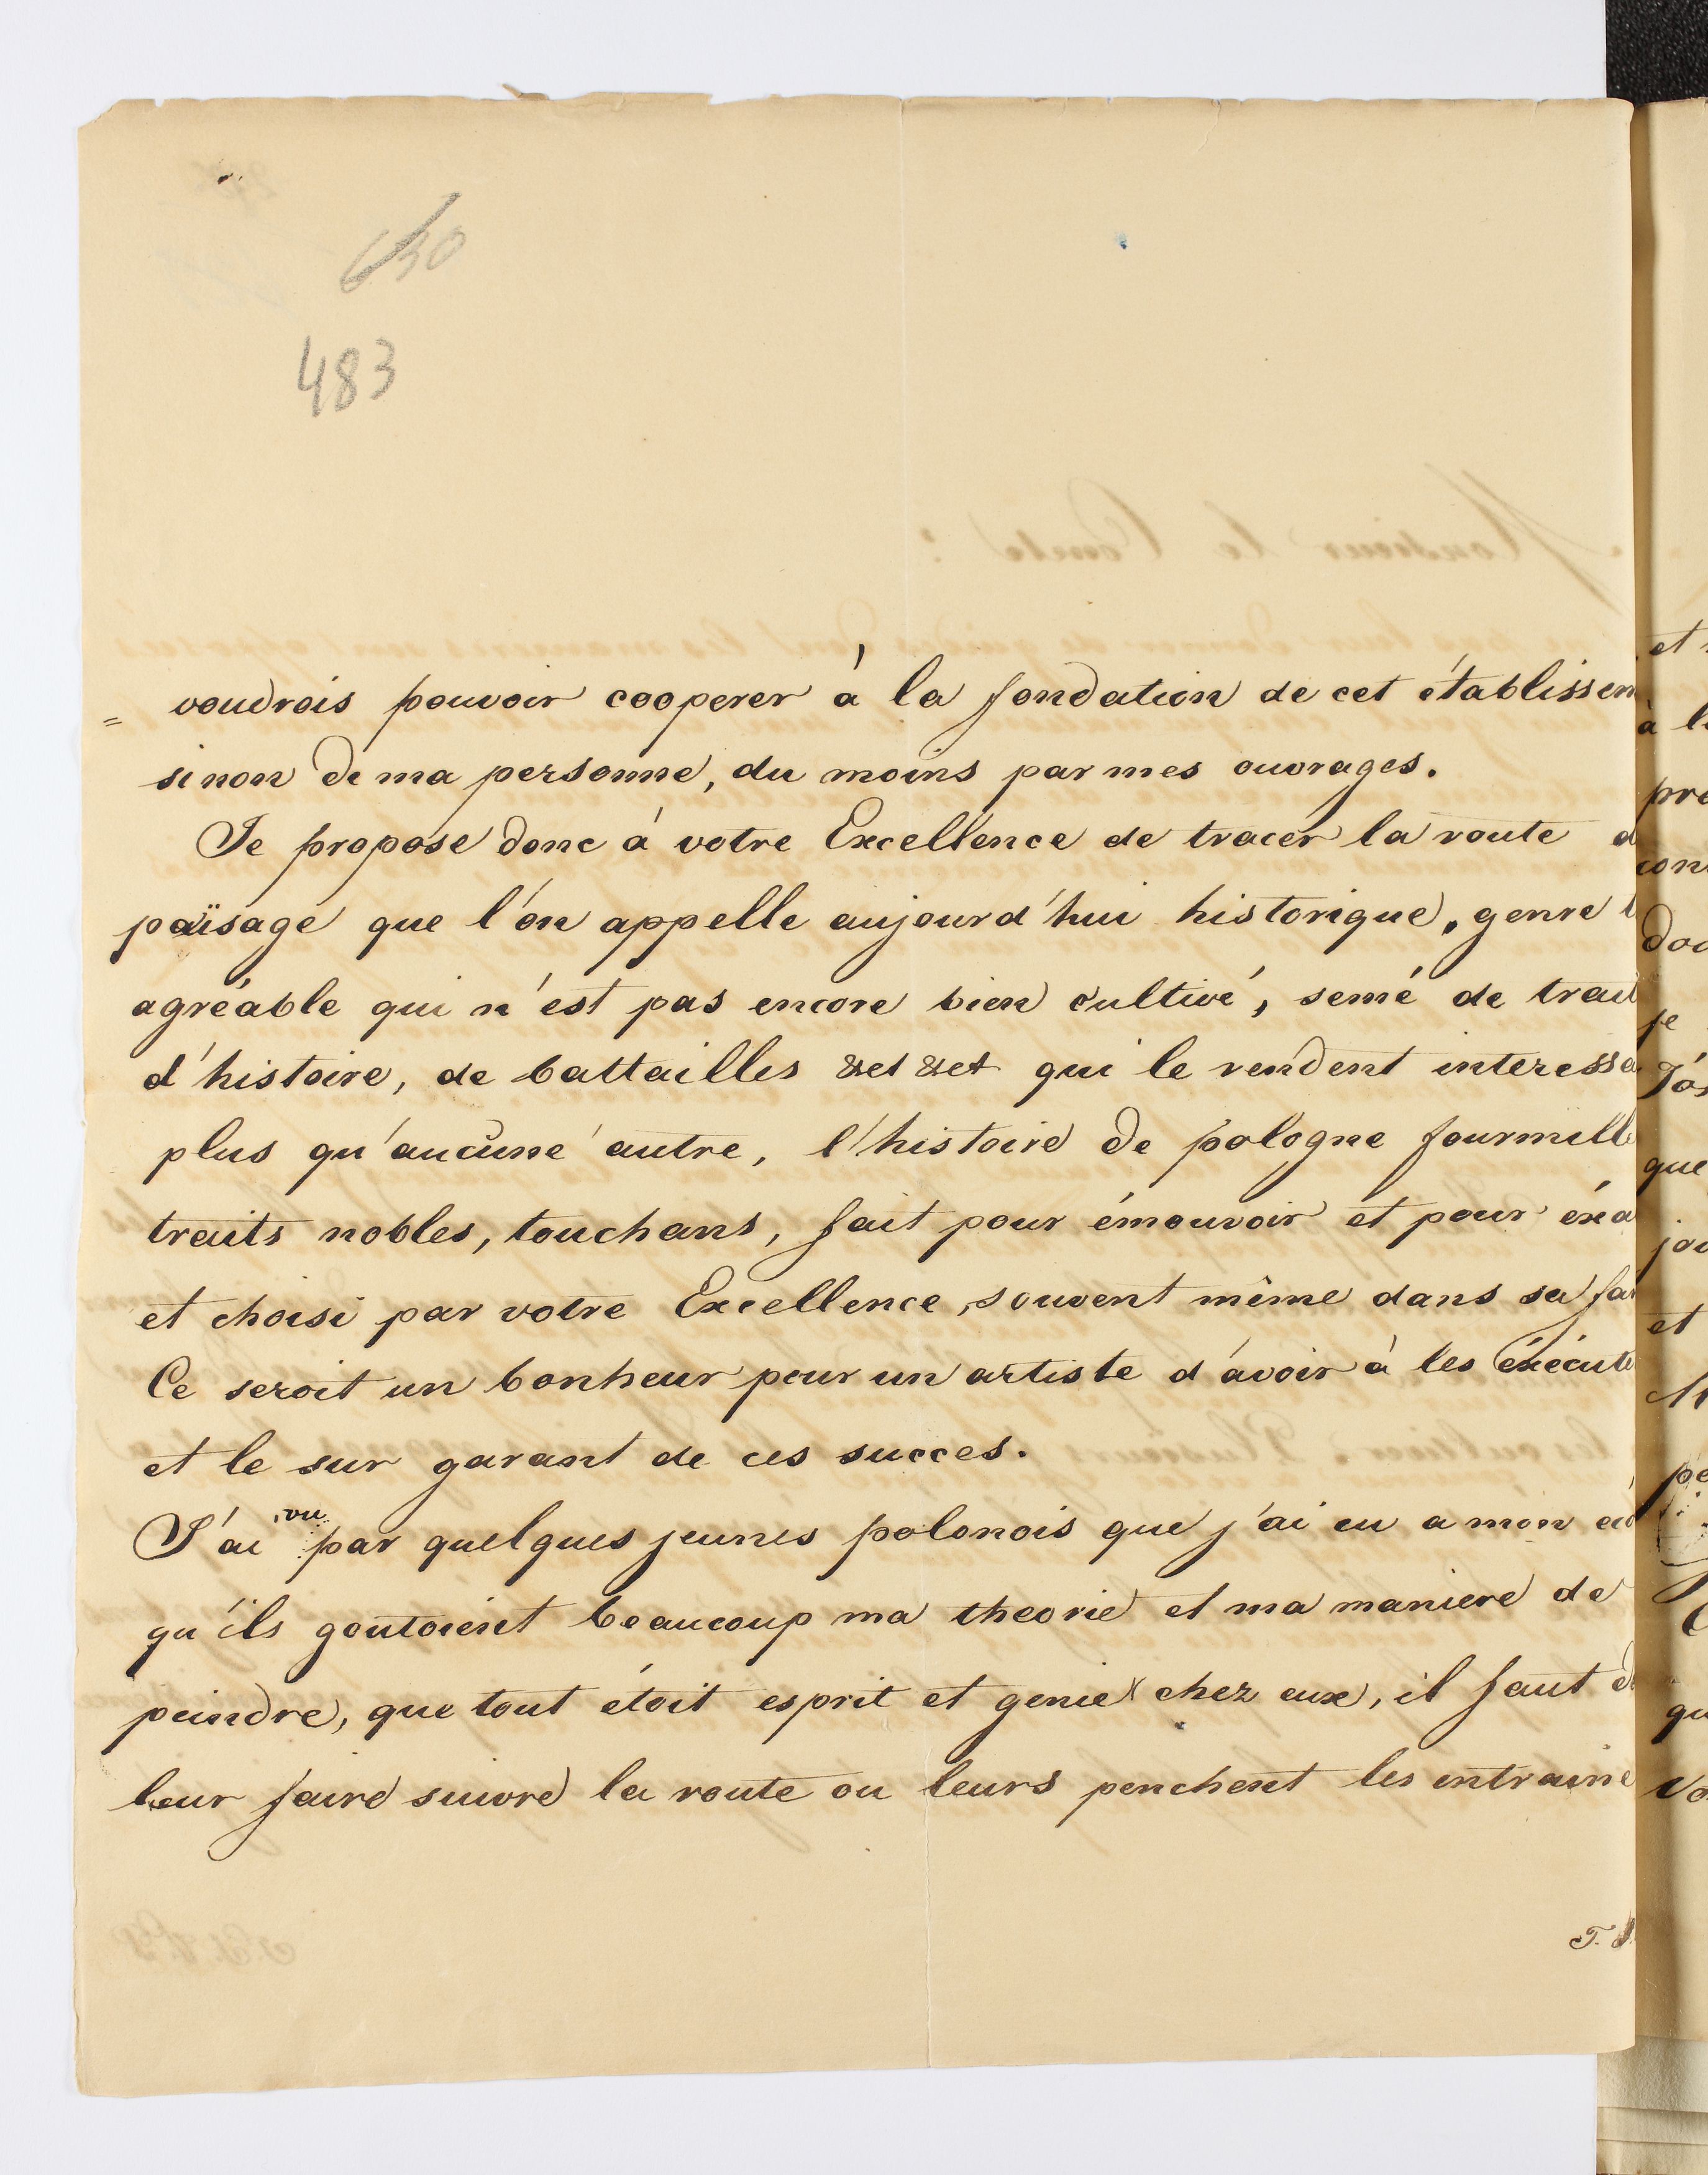 630
483
= voudrois pouvoir cooperer à la fondation de cet établissem
sinon de ma personne, du moins par mes ouvrages.
Je propose donc à votre Excellence de tracer la route d
païsage que l'on appelle aujourd'hui historique, genre
agréable qui n'est pas encore bien cultivé, semé de trait
d'histoire, de battailles &et &et qui le rendent interessa
plus qu'aucune autre, l'histoire de pologne fourmille
traits nobles, touchans, fait pour émouvoir et pour éxa
et choisi par votre Excellence, souvent même dans sa fa
Ce seroit un bonheur pour un artiste d'avoir à les éxécute
et le sur garant de ces succes.
J'ai vu par quelques jeunes polonois que j'ai eu a mon
qu'ils goutoient beaucoup ma theorie et ma maniere de
peindre, que tout étoit esprit et genie chez eux, il faut d
leur faire suivre la route ou leurs penchent les entraine
T.
et
à l
pre
con
doc
je
J'os
que
jou
et
pe
qu
vo